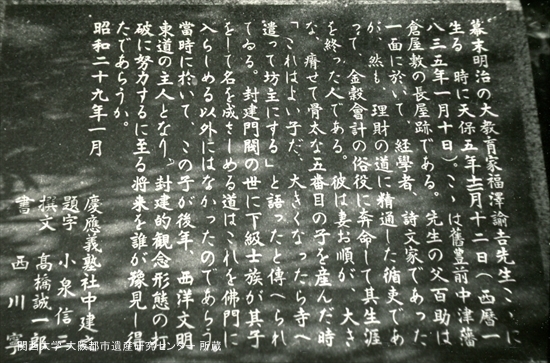 幕末明治の大教育家福澤諭吉先生こゝに
生る 時に天保五年十二月十二日(西暦一
八三五年一月十日)。こゝは舊豊前中津藩
倉屋敷の長屋跡である。 先生の父百助は
一面に於いて 経學者、 詩文家であった
が、然も、理財の道に精通した循吏であ
って、金穀會計の俗役に奔命して其生涯
を終った人である。彼は妻お順が、大き
な、瘠せて骨太な五番目の子を産んだ時
「これはよい子だ、大きくなったら寺へ
遣って坊主にする」と語ったと傳へられ
てゐる。封建門閥の世に下級士族が其子
をして名を成さしめる道はこれを佛門に
入らしめる以外にはなかったのであらう
當時に於いて、この子が後年、西洋文明
東道の主人となり、封建的觀念形態の打
破に努力するに至る将来を誰が豫見し得
たであらうか。
昭和二十九年一月
慶應義塾社中建之
題字 小泉信三
撰文 高橋誠一郎
書 西川寧
関西大学 大阪都市遺産研究センター 所蔵